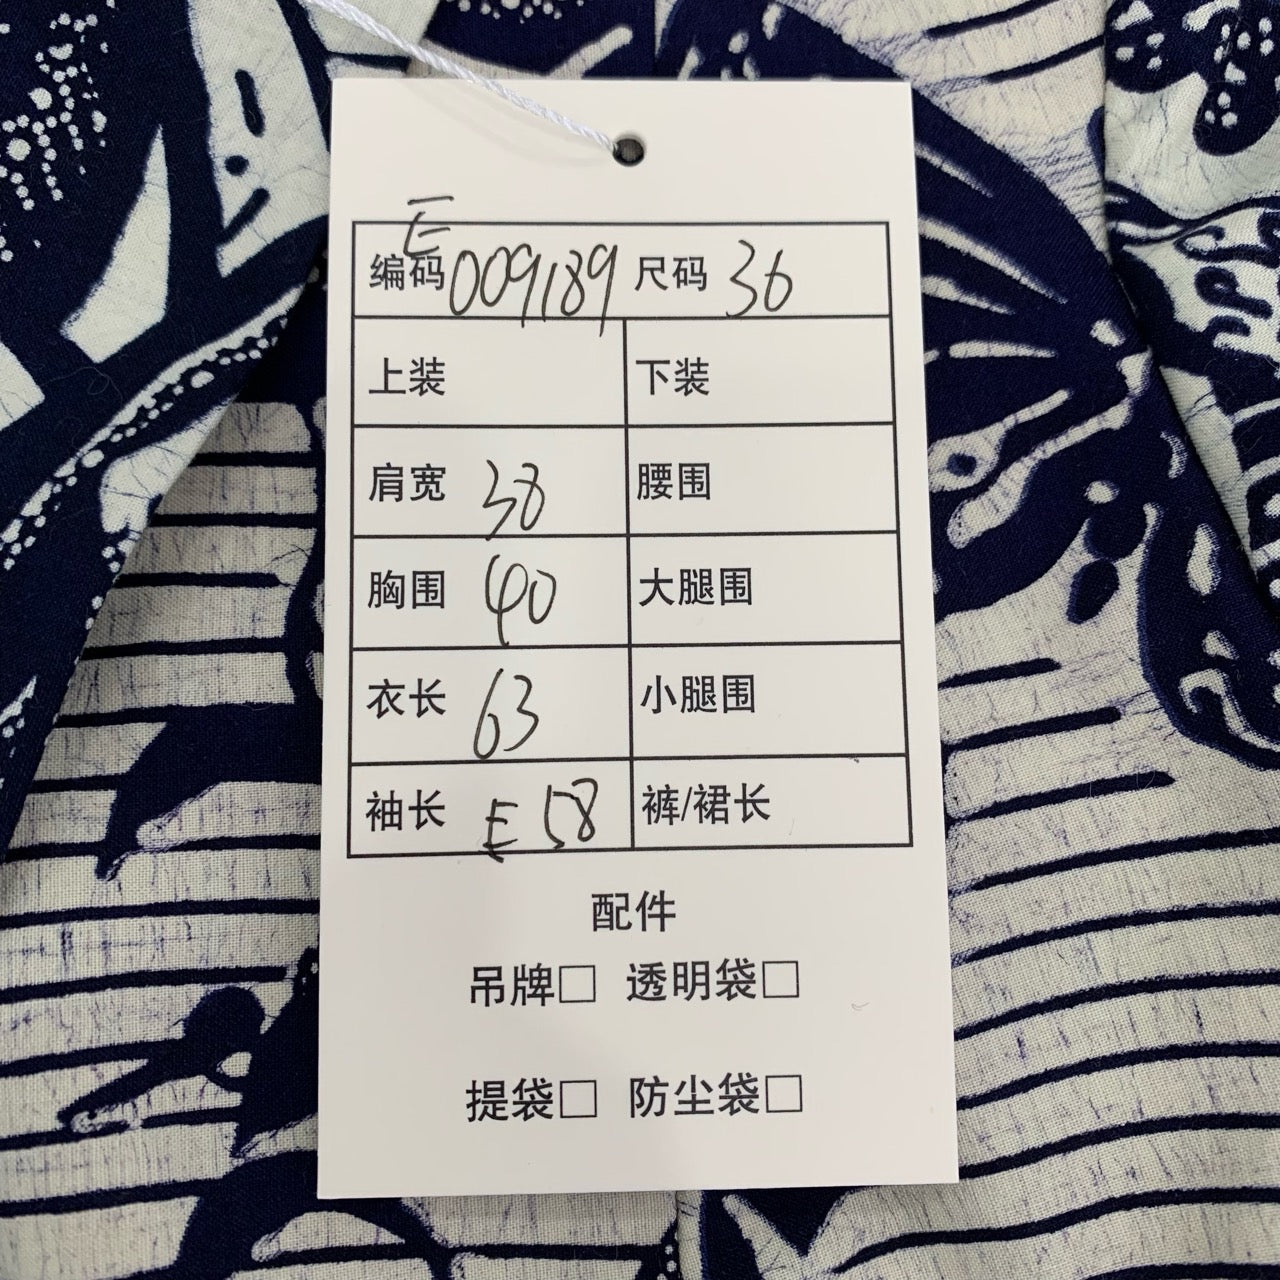 E
编码 009189 尺码 36
上装 下装
肩宽 38 腰围
胸围 40 大腿围
衣长 63 小腿围
袖长 E 58 裤/裙长
配件
吊牌□ 透明袋□
提袋□ 防尘袋□